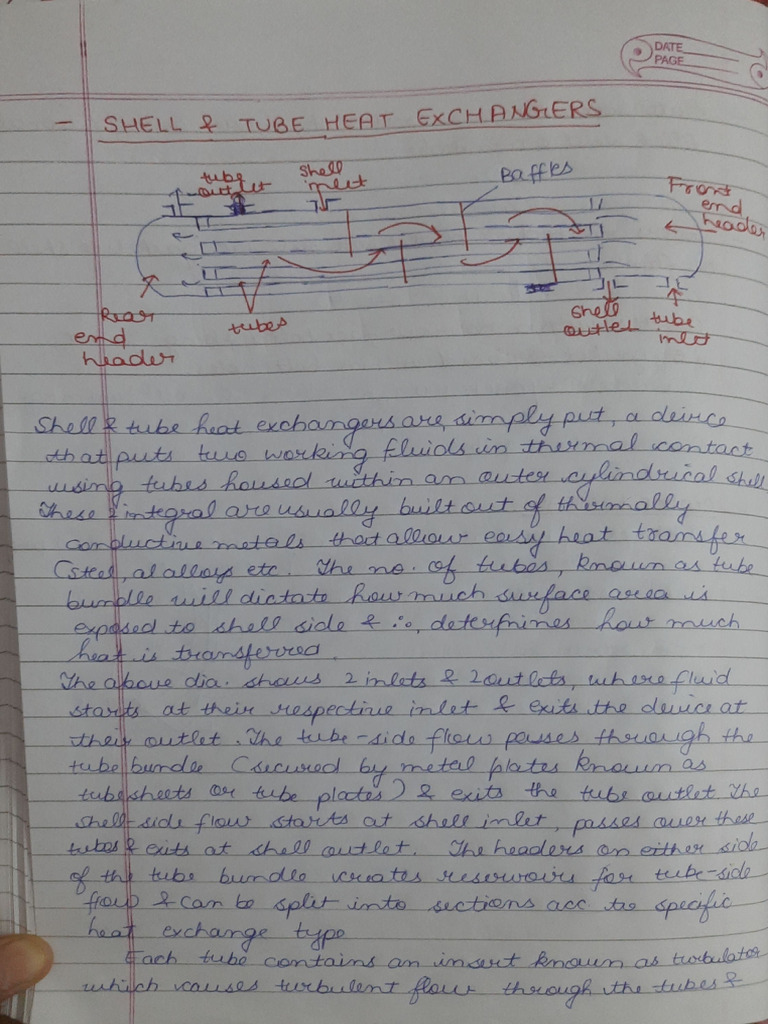 DATE
PAGE
- SHELL & TUBE HEAT EXCHANGERS
tube outlet
shell inlet
Baffles
Front end header
Rear end header
tubes
shell outlet
tube inlet
Shell & tube heat exchangers are, simply put, a deivce
that puts two working fluids in thermal contact
using tubes housed within an outer cylindrical shell
These 2 integral are usually built out of thermally
conductive metals that allow easy heat transfer
(steel, al alloys etc. The no. of tubes, known as tube
bundle will dictate how much surface area is
exposed to shell side & ∴, determines how much
heat is transferred.
The above dia. shows 2 inlets & 2 outlets, where fluid
starts at their respective inlet & exits the device at
their outlet. The tube-side flow passes through the
tube bundle (secured by metal plates known as
tubesheets or tube plates) & exits the tube outlet. The
shell-side flow starts at shell inlet, passes over these
tubes & exits at shell outlet. The headers on either side
of the tube bundle creates reservoirs for tube-side
flow & can be split into sections acc to specific
heat exchange type
Each tube contains an insert known as turbulator
which causes turbulent flow through the tubes &